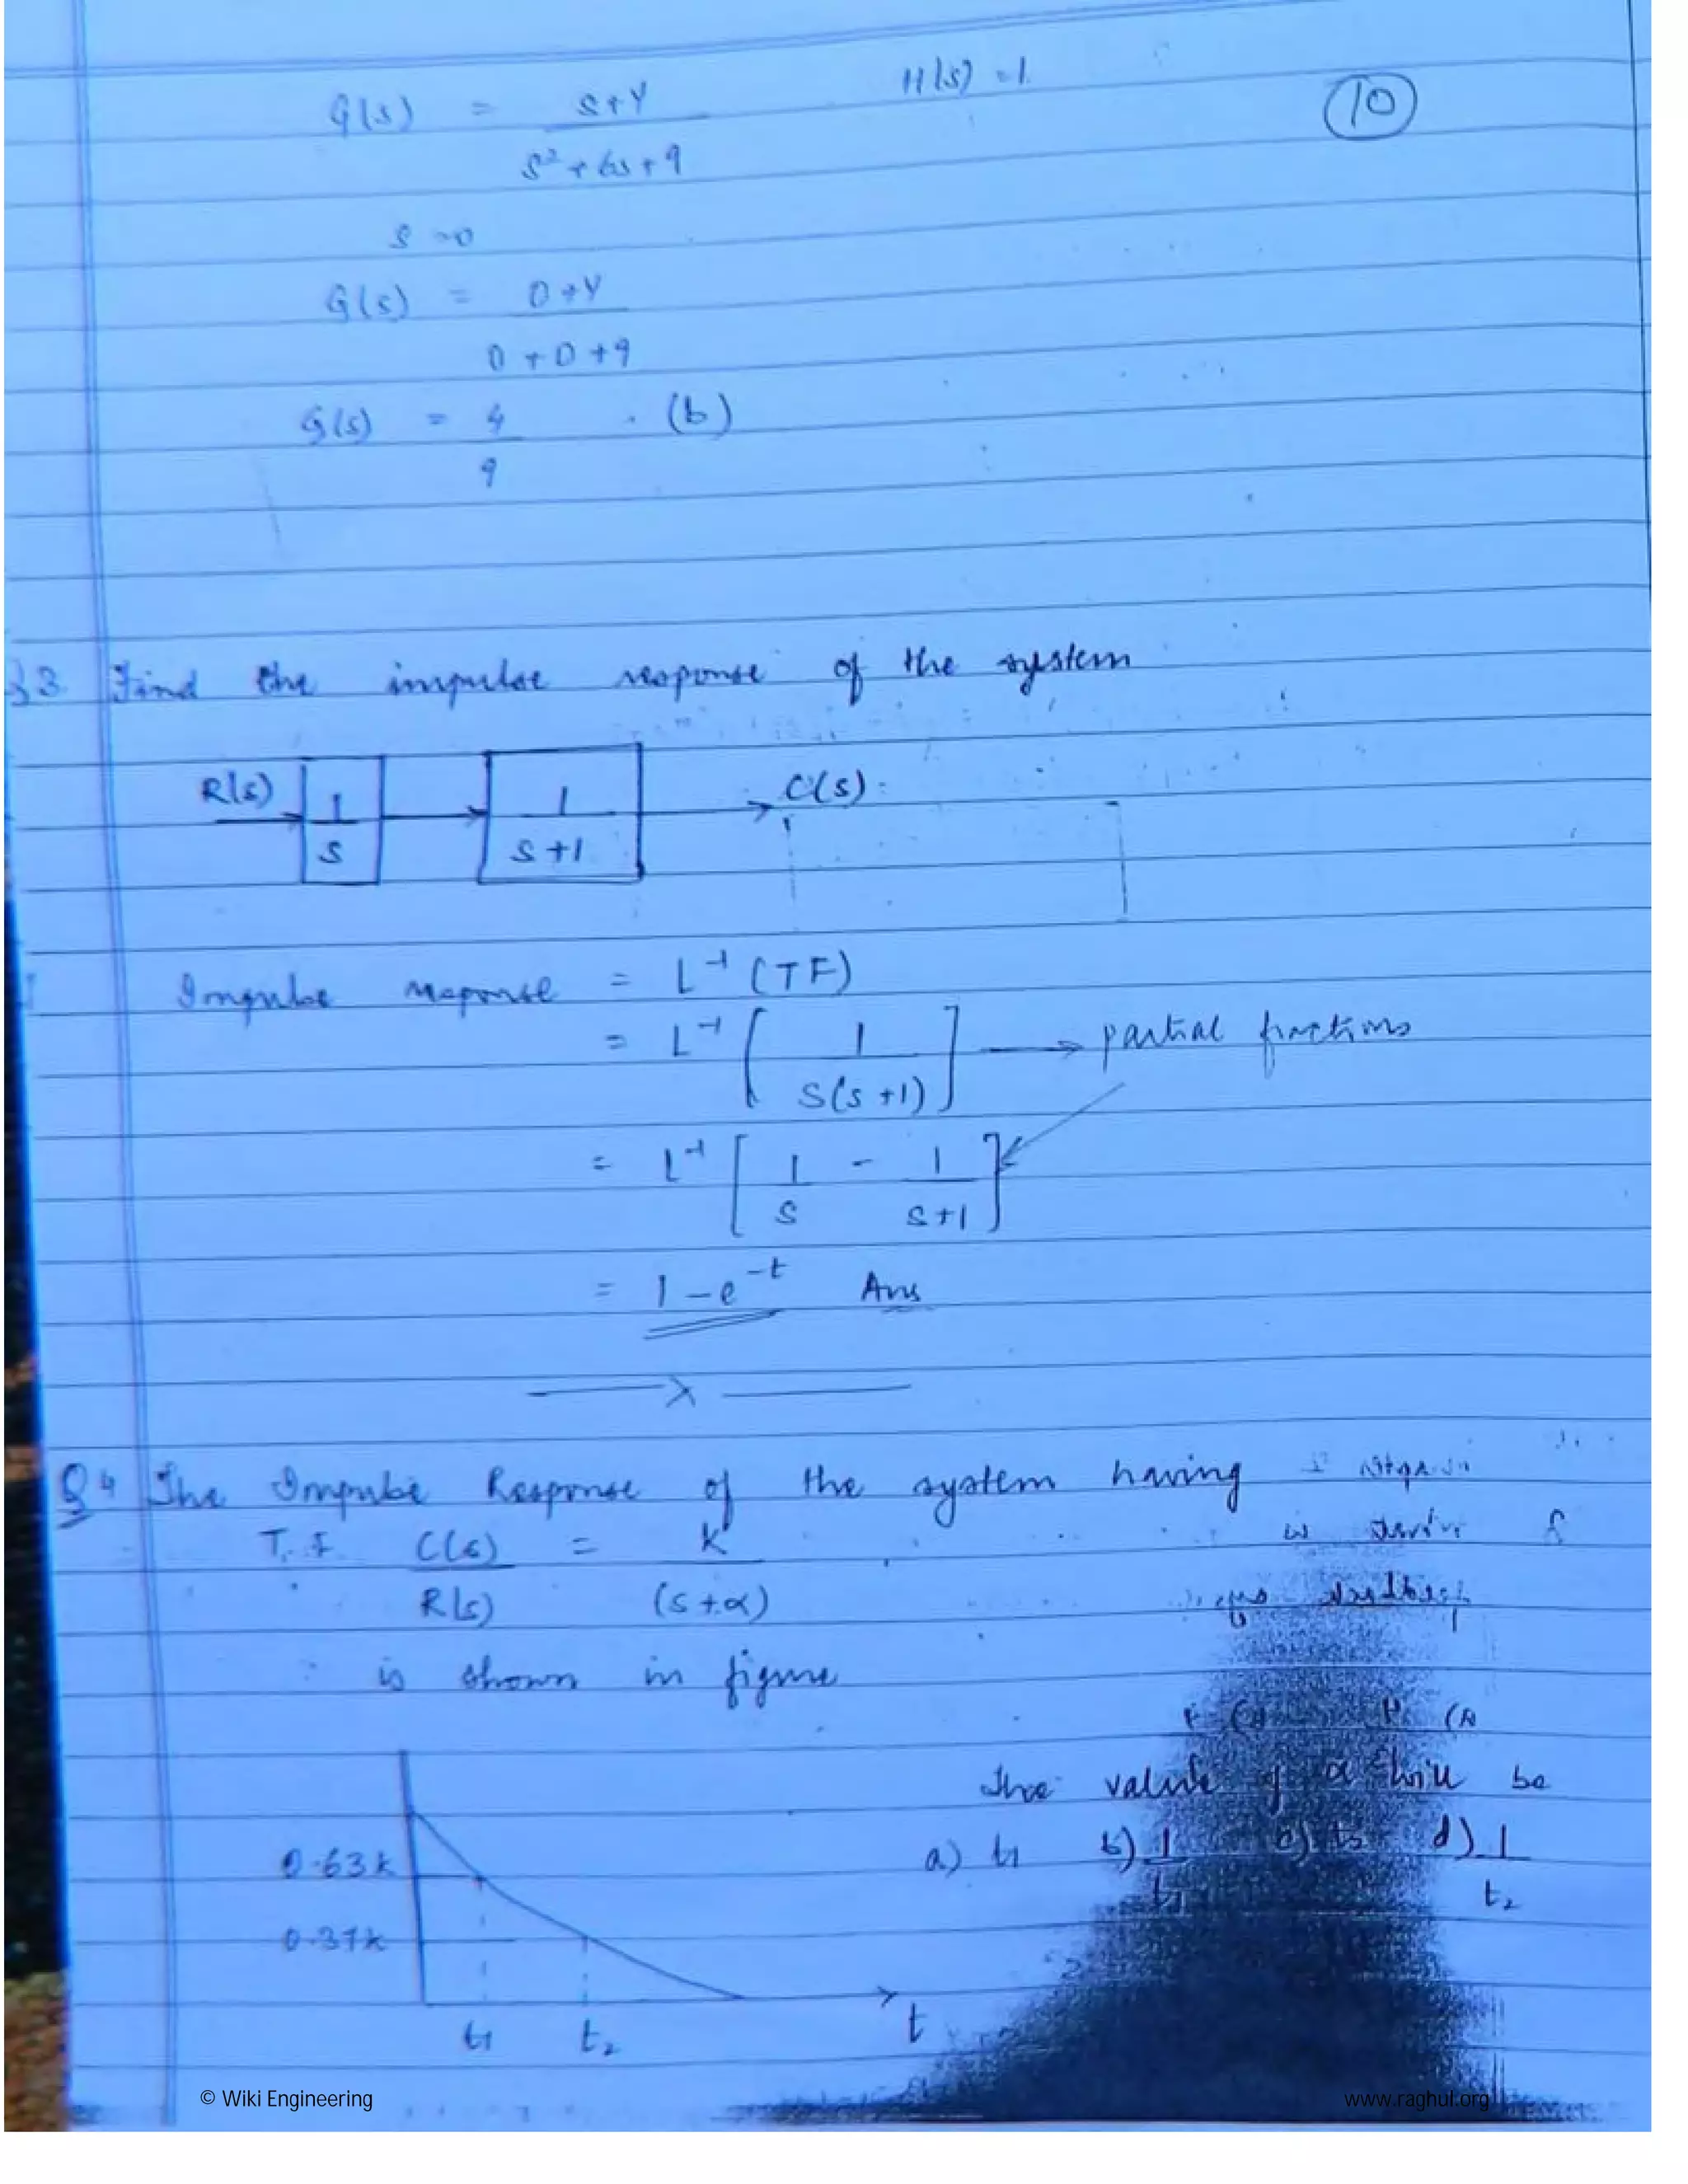 G(s) = s+4 H(s) = 1 10
s² + 6s + 9
s = 0
G(s) = 0+4
0 + 0 + 9
G(s) = 4 (b)
9
Q3 Find the impulse response of the system
R(s) 1 1 C(s)
s s+1
Impulse response = L⁻¹ (TF)
= L⁻¹ [ 1 ] → partial fractions
s(s+1)
= L⁻¹ [ 1 - 1 ]
s s+1
= 1 - e⁻ᵗ Ans
x
Q4 The Impulse Response of the system having
T.F. C(s) = K
R(s) (s+α)
is shown in figure
The value of α will be
0.63k a) t1 b) 1 d) 1
t1 t2
0.37k
t1 t2 t
© Wiki Engineering www.raghul.org